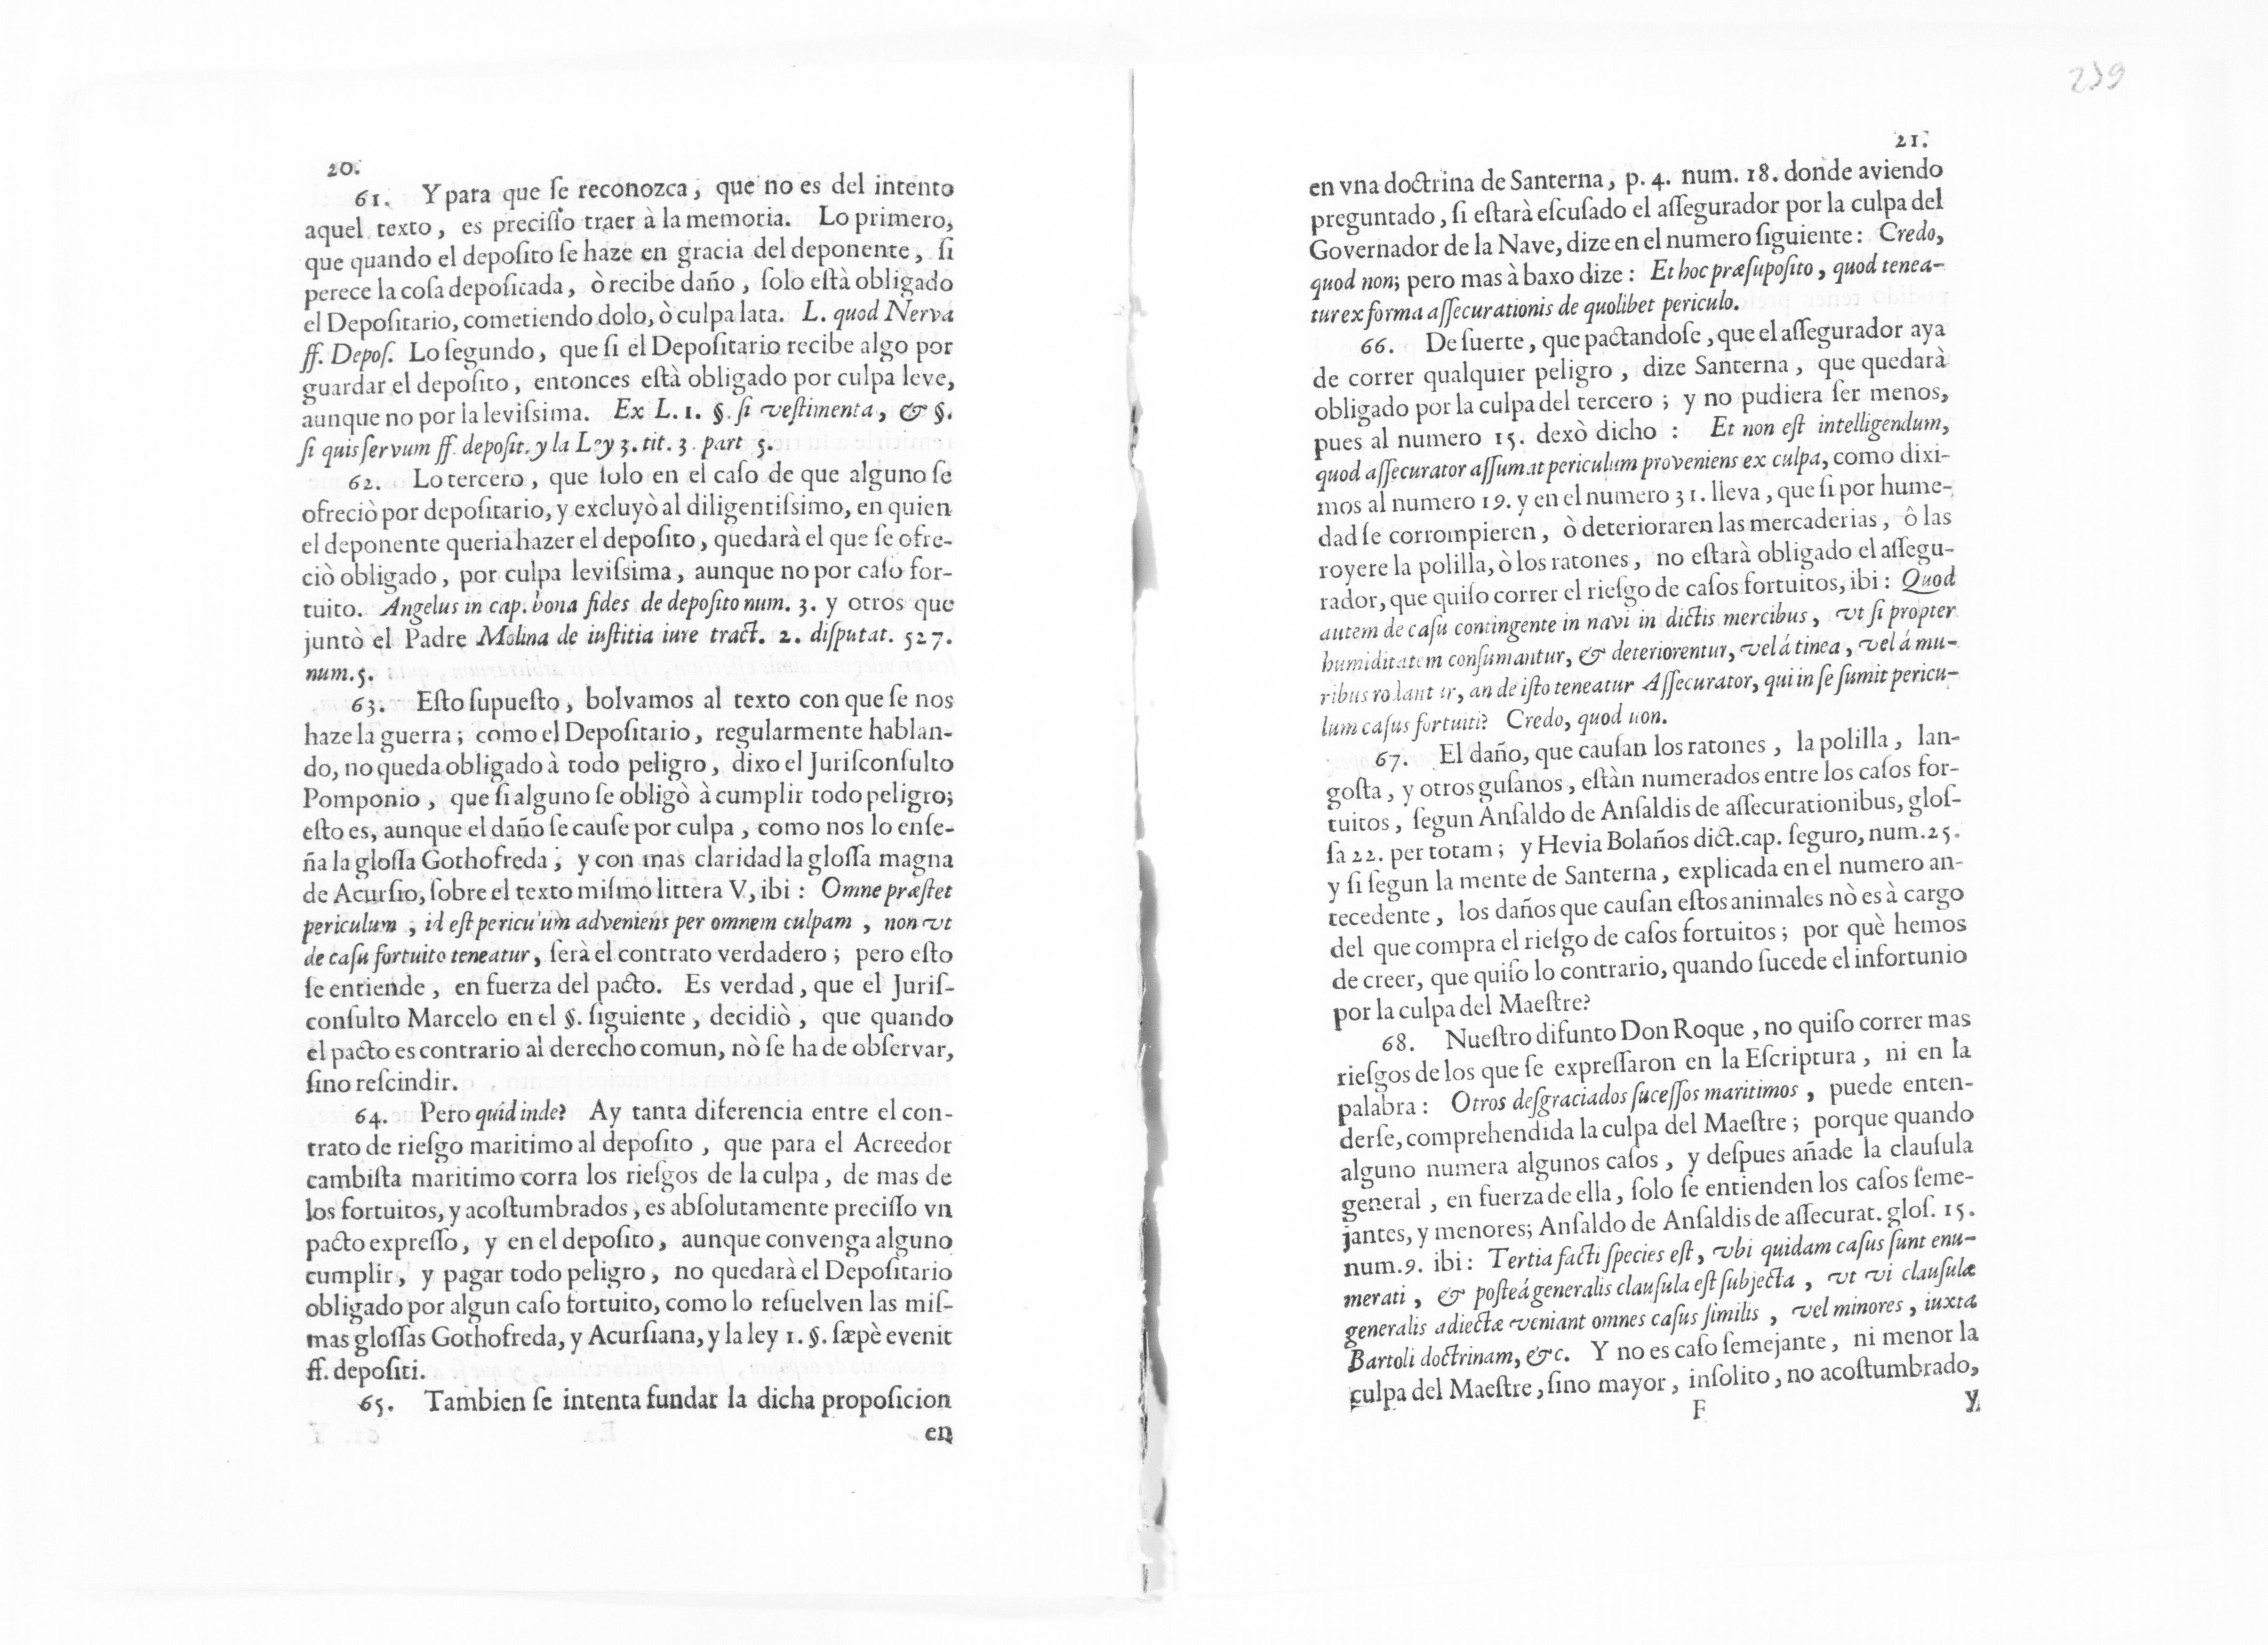 20.
61. Y para que ſe reconozca, que no es del intento
aquel texto, es preciſſo traer à la memoria. Lo primero,
que quando el depoſito ſe haze en gracia del deponente, ſi
perece la coſa depoſitada, ò recibe daño, ſolo eſtà obligado
el Depoſitario, cometiendo dolo, ò culpa lata. L. quod Nerva
ff. Depoſ. Lo ſegundo, que ſi el Depoſitario recibe algo por
guardar el depoſito, entonces eſtà obligado por culpa leve,
aunque no por la leviſsima. Ex L. 1. §. ſi veſtimenta, & §.
ſi quis ſervum ff. depoſit. y la Ley 3. tit. 3. part 5.
62. Lo tercero, que ſolo en el caſo de que alguno ſe
ofreciò por depoſitario, y excluyò al diligentiſsimo, en quien
el deponente queria hazer el depoſito, quedarà el que ſe ofre-
ciò obligado, por culpa leviſsima, aunque no por caſo for-
tuito. Angelus in cap. bona fides de depoſito num. 3. y otros que
juntò el Padre Molina de iuſtitia iure tract. 2. diſputat. 527.
num. 5.
63. Eſto ſupueſto, bolvamos al texto con que ſe nos
haze la guerra; como el Depoſitario, regularmente hablan-
do, no queda obligado à todo peligro, dixo el Juriſconſulto
Pomponio, que ſi alguno ſe obligò à cumplir todo peligro;
eſto es, aunque el daño ſe cauſe por culpa, como nos lo enſe-
ña la gloſſa Gothofreda; y con mas claridad la gloſſa magna
de Acurſio, ſobre el texto miſmo littera V, ibi: Omne præſtet
periculum, id eſt periculum adveniens per omnem culpam, non vt
de caſu fortuito teneatur, ſerà el contrato verdadero; pero eſto
ſe entiende, en fuerza del pacto. Es verdad, que el Juriſ-
conſulto Marcelo en el §. ſiguiente, decidiò, que quando
el pacto es contrario al derecho comun, nò ſe ha de obſervar,
ſino reſcindir.
64. Pero quid inde? Ay tanta diferencia entre el con-
trato de rieſgo maritimo al depoſito, que para el Acreedor
cambiſta maritimo corra los rieſgos de la culpa, de mas de
los fortuitos, y acoſtumbrados, es abſolutamente preciſſo vn
pacto expreſſo, y en el depoſito, aunque convenga alguno
cumplir, y pagar todo peligro, no quedarà el Depoſitario
obligado por algun caſo fortuito, como lo reſuelven las miſ-
mas gloſſas Gothofreda, y Acurſiana, y la ley 1. §. ſæpè evenit
ff. depoſiti.
65. Tambien ſe intenta fundar la dicha propoſicion
en
239
21.
en vna doctrina de Santerna, p. 4. num. 18. donde aviendo
preguntado, ſi eſtarà eſcuſado el aſſegurador por la culpa del
Governador de la Nave, dize en el numero ſiguiente: Credo,
quod non; pero mas à baxo dize: Et hoc præſupoſito, quod tenea-
tur ex forma aſſecurationis de quolibet periculo.
66. De ſuerte, que pactandoſe, que el aſſegurador aya
de correr qualquier peligro, dize Santerna, que quedarà
obligado por la culpa del tercero; y no pudiera ſer menos,
pues al numero 15. dexò dicho: Et non eſt intelligendum,
quod aſſecurator aſſumat periculum proveniens ex culpa, como dixi-
mos al numero 19. y en el numero 31. lleva, que ſi por hume-
dad ſe corrompieren, ò deterioraren las mercaderias, ô las
royere la polilla, ò los ratones, no eſtarà obligado el aſſegu-
rador, que quiſo correr el rieſgo de caſos fortuitos, ibi: Quod
autem de caſu contingente in navi in dictis mercibus, vt ſi propter
humiditatem conſumantur, & deteriorentur, vel á tinea, vel á mu-
ribus rodantur, an de iſto teneatur Aſſecurator, qui in ſe ſumit pericu-
lum caſus fortuiti? Credo, quod non.
67. El daño, que cauſan los ratones, la polilla, lan-
goſta, y otros guſanos, eſtàn numerados entre los caſos for-
tuitos, ſegun Anſaldo de Anſaldis de aſſecurationibus, gloſ-
ſa 22. per totam; y Hevia Bolaños dict. cap. ſeguro, num. 25.
y ſi ſegun la mente de Santerna, explicada en el numero an-
tecedente, los daños que cauſan eſtos animales nò es à cargo
del que compra el rieſgo de caſos fortuitos; por què hemos
de creer, que quiſo lo contrario, quando ſucede el infortunio
por la culpa del Maeſtre?
68. Nueſtro difunto Don Roque, no quiſo correr mas
rieſgos de los que ſe expreſſaron en la Eſcriptura, ni en la
palabra: Otros deſgraciados ſuceſſos maritimos, puede enten-
derſe, comprehendida la culpa del Maeſtre; porque quando
alguno numera algunos caſos, y deſpues añade la clauſula
general, en fuerza de ella, ſolo ſe entienden los caſos ſeme-
jantes, y menores; Anſaldo de Anſaldis de aſſecurat. gloſ. 15.
num. 9. ibi: Tertia facti ſpecies eſt, vbi quidam caſus ſunt enu-
merati, & poſteá generalis clauſula eſt ſubjecta, vt vi clauſulæ
generalis adiectæ veniant omnes caſus ſimilis, vel minores, iuxta
Bartoli doctrinam, &c. Y no es caſo ſemejante, ni menor la
culpa del Maeſtre, ſino mayor, inſolito, no acoſtumbrado,
F
y